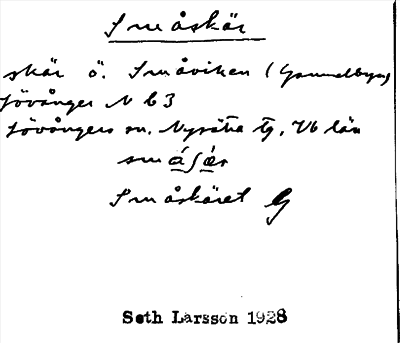 Småskär
skär ö. Småviken (Gammelbyn)
Lövånger N b 3
Lövångers sn. Nysätra tg, Vb län
Småskäret G
Seth Larsson 1928